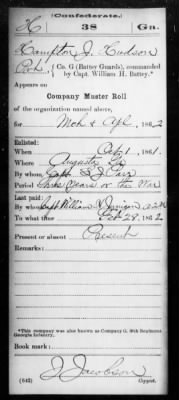 (Confederate.)
H 38 Ga.
Hampton J. Cudson
Pvt., Co. G (Battey Guards), commanded
by Capt. William H. Battey.*
Appears on
Company Muster Roll
of the organization named above,
for Mch & Apl, 1862
Enlisted:
When Oct 1, 1861.
Where Augusta Ga
By whom Capt.
Period Three Years or the War
Last paid:
By whom Capt William
To what time Feb 28, 1862
Present or absent Present
Remarks:
*This company was also known as Company G, 38th Regiment
Georgia Infantry.
Book mark:
J Jacobson
(642) Copyist.